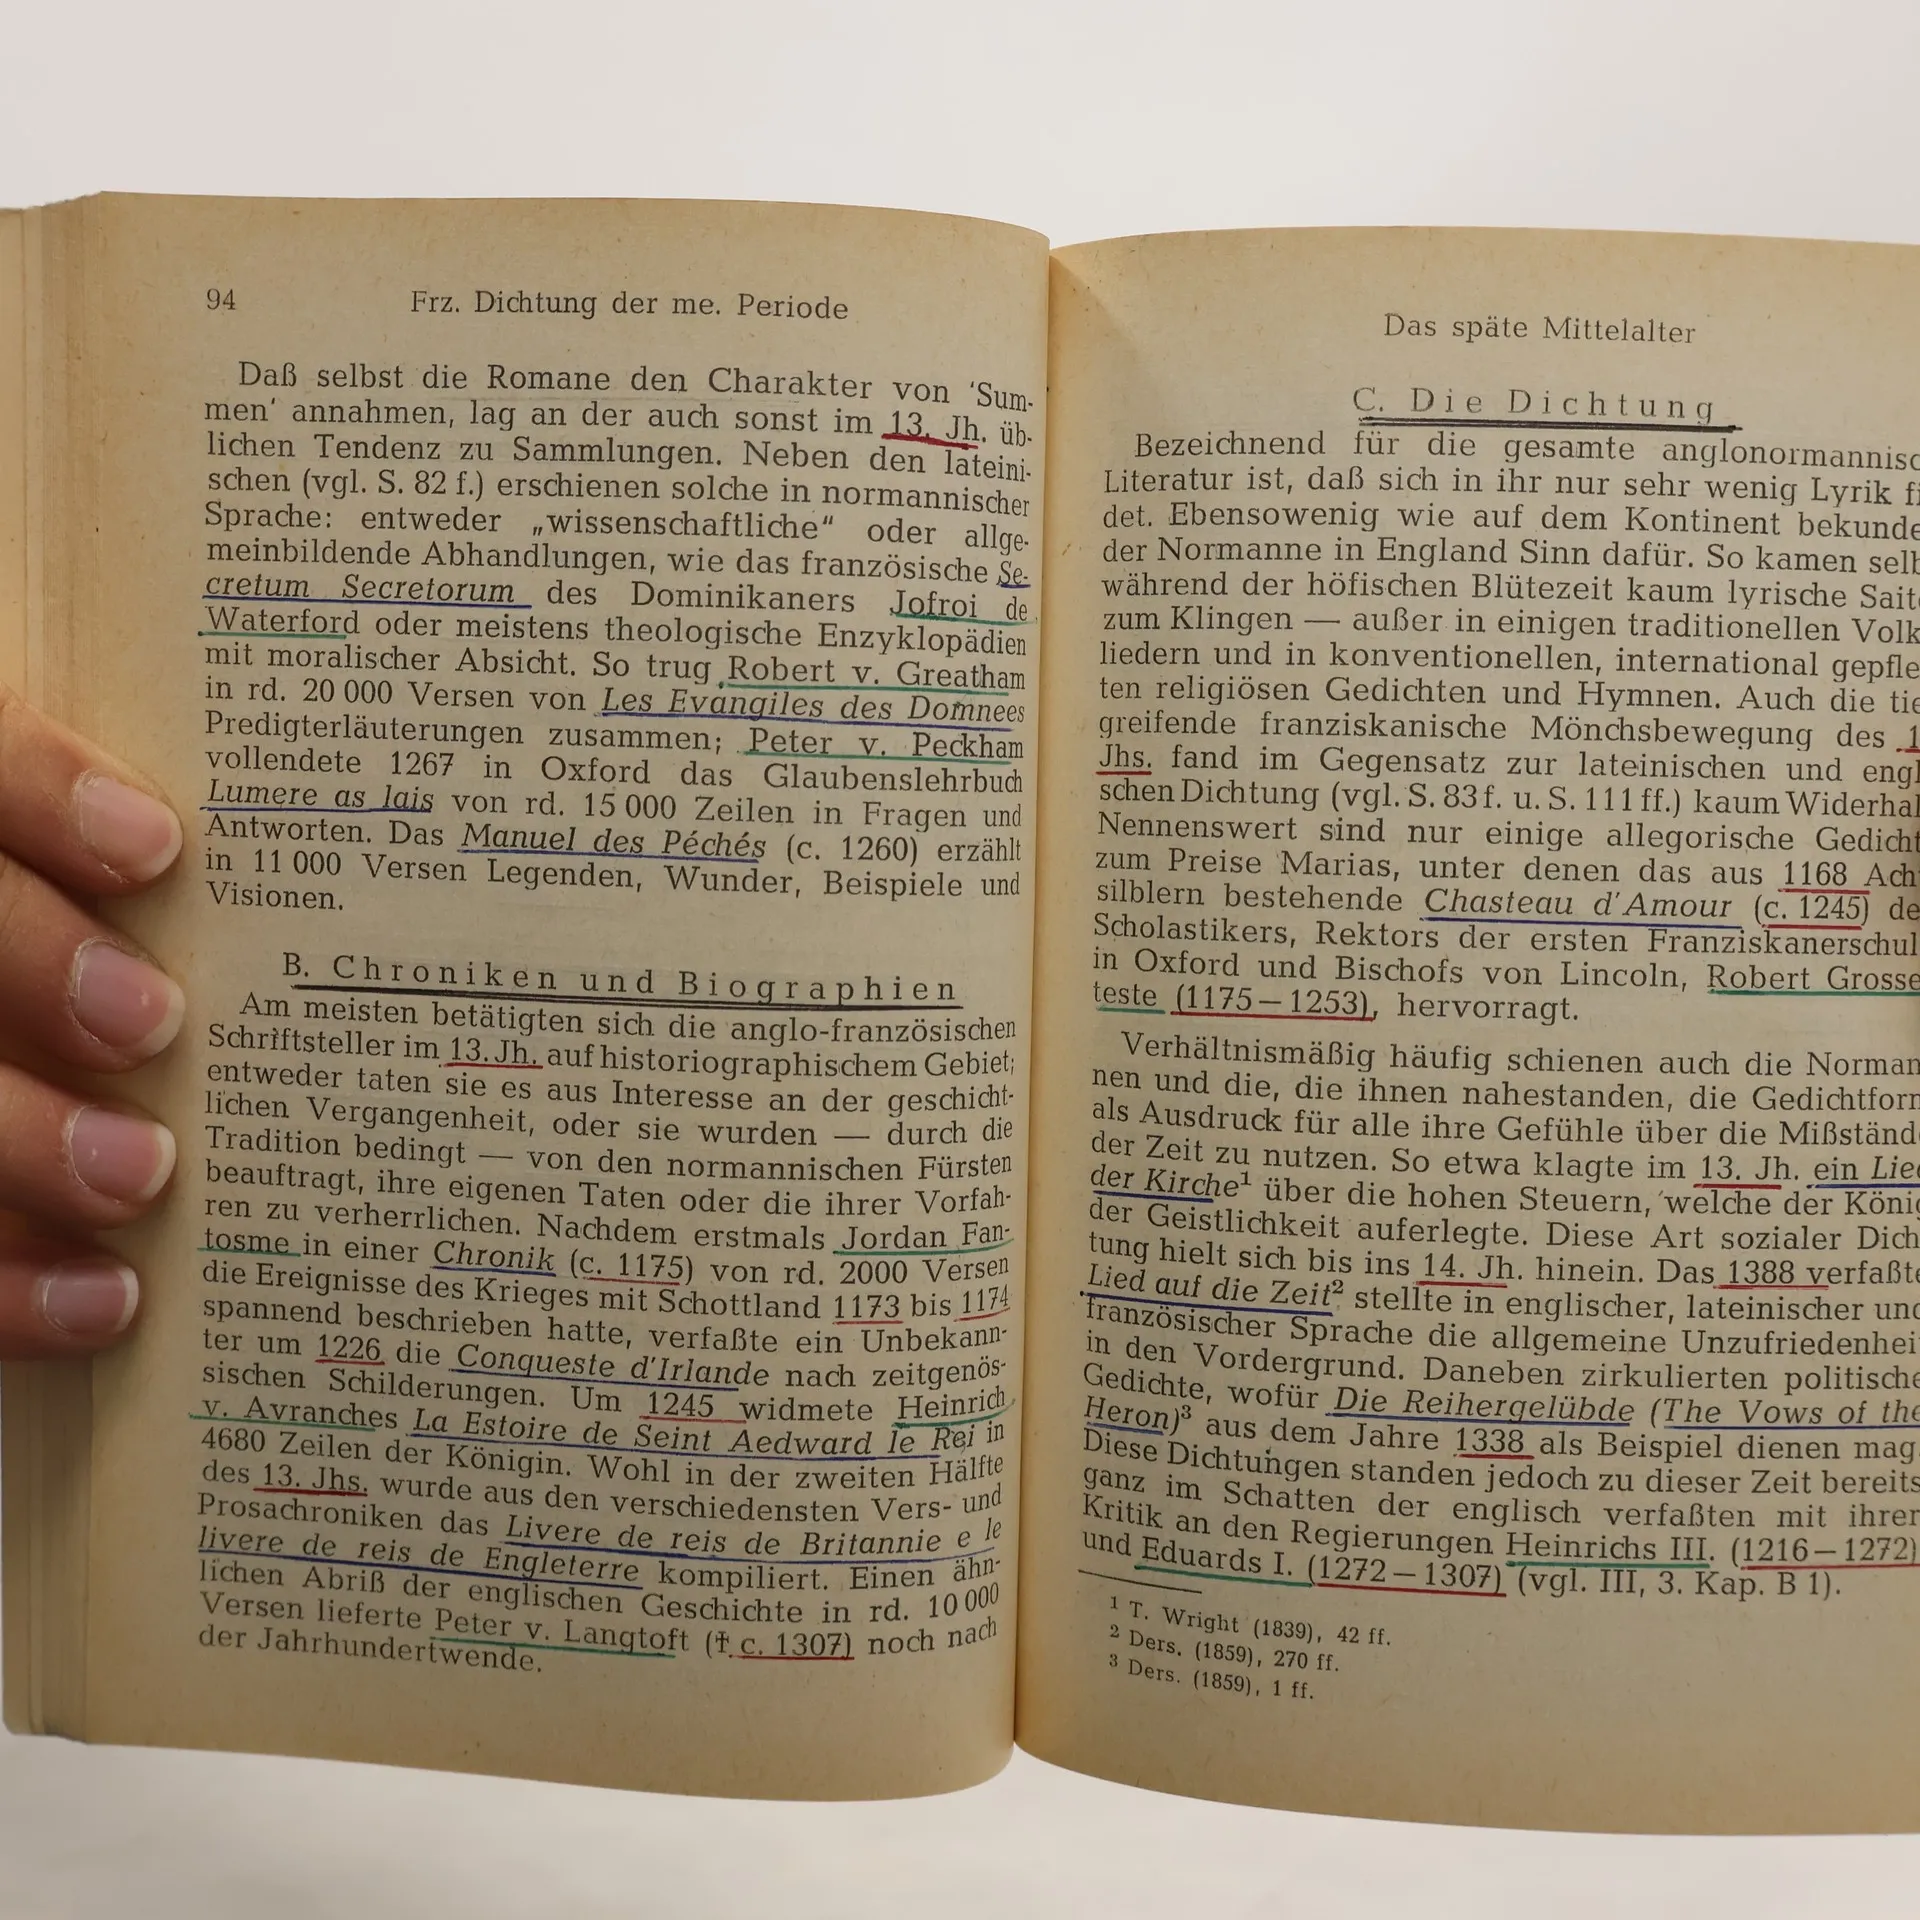 94 Frz. Dichtung der me. Periode
Daß selbst die Romane den Charakter von 'Sum-
men' annahmen, lag an der auch sonst im 13. Jh. üb-
lichen Tendenz zu Sammlungen. Neben den lateini-
schen (vgl. S. 82 f.) erschienen solche in normannischer
Sprache: entweder „wissenschaftliche“ oder allge-
meinbildende Abhandlungen, wie das französische Se-
cretum Secretorum des Dominikaners Jofroi de
Waterford oder meistens theologische Enzyklopädien
mit moralischer Absicht. So trug Robert v. Greatham
in rd. 20 000 Versen von Les Evangiles des Domnees
Predigterläuterungen zusammen; Peter v. Peckham
vollendete 1267 in Oxford das Glaubenslehrbuch
Lumere as lais von rd. 15 000 Zeilen in Fragen und
Antworten. Das Manuel des Péchés (c. 1260) erzählt
in 11 000 Versen Legenden, Wunder, Beispiele und
Visionen.
B. Chroniken und Biographien
Am meisten betätigten sich die anglo-französischen
Schriftsteller im 13. Jh. auf historiographischem Gebiet;
entweder taten sie es aus Interesse an der geschicht-
lichen Vergangenheit, oder sie wurden — durch die
Tradition bedingt — von den normannischen Fürsten
beauftragt, ihre eigenen Taten oder die ihrer Vorfah-
ren zu verherrlichen. Nachdem erstmals Jordan Fan-
tosme in einer Chronik (c. 1175) von rd. 2000 Versen
die Ereignisse des Krieges mit Schottland 1173 bis 1174
spannend beschrieben hatte, verfaßte ein Unbekann-
ter um 1226 die Conqueste d'Irlande nach zeitgenös-
sischen Schilderungen. Um 1245 widmete Heinrich
v. Avranches La Estoire de Seint Aedward le Rei in
4680 Zeilen der Königin. Wohl in der zweiten Hälfte
des 13. Jhs. wurde aus den verschiedensten Vers- und
Prosachroniken das Livere de reis de Britannie e le
livere de reis de Engleterre kompiliert. Einen ähn-
lichen Abriß der englischen Geschichte in rd. 10 000
Versen lieferte Peter v. Langtoft († c. 1307) noch nach
der Jahrhundertwende.
Das späte Mittelalter
C. Die Dichtung
Bezeichnend für die gesamte anglonormannisc
Literatur ist, daß sich in ihr nur sehr wenig Lyrik fi
det. Ebensowenig wie auf dem Kontinent bekunde
der Normanne in England Sinn dafür. So kamen selb
während der höfischen Blütezeit kaum lyrische Saite
zum Klingen — außer in einigen traditionellen Volk
liedern und in konventionellen, international gepfle
ten religiösen Gedichten und Hymnen. Auch die tie
greifende franziskanische Mönchsbewegung des 1
Jhs. fand im Gegensatz zur lateinischen und engl
schen Dichtung (vgl. S. 83 f. u. S. 111 ff.) kaum Widerhal
Nennenswert sind nur einige allegorische Gedicht
zum Preise Marias, unter denen das aus 1168 Ach
silblern bestehende Chasteau d'Amour (c. 1245) de
Scholastikers, Rektors der ersten Franziskanerschul
in Oxford und Bischofs von Lincoln, Robert Grosse
teste (1175—1253), hervorragt.
Verhältnismäßig häufig schienen auch die Norman
nen und die, die ihnen nahestanden, die Gedichtform
als Ausdruck für alle ihre Gefühle über die Mißstände
der Zeit zu nutzen. So etwa klagte im 13. Jh. ein Lied
der Kirche¹ über die hohen Steuern, welche der König
der Geistlichkeit auferlegte. Diese Art sozialer Dich
tung hielt sich bis ins 14. Jh. hinein. Das 1388 verfaßte
Lied auf die Zeit² stellte in englischer, lateinischer und
französischer Sprache die allgemeine Unzufriedenheit
in den Vordergrund. Daneben zirkulierten politische
Gedichte, wofür Die Reihergelübde (The Vows of the
Heron)³ aus dem Jahre 1338 als Beispiel dienen mag.
Diese Dichtungen standen jedoch zu dieser Zeit bereits
ganz im Schatten der englisch verfaßten mit ihrer
Kritik an den Regierungen Heinrichs III. (1216—1272)
und Eduards I. (1272—1307) (vgl. III, 3. Kap. B 1).
¹ T. Wright (1839), 42 ff.
² Ders. (1859), 270 ff.
³ Ders. (1859), 1 ff.